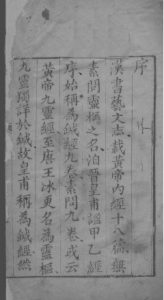 序
漢書藝文志載黃帝内經十八篇無
素問靈樞之名洎晉皇甫謐甲乙經
序始稱為鍼經九卷素問九卷或云
黃帝九靈經至唐王冰更名為靈樞
九靈獨詳於鍼故皇甫稱為鍼經然